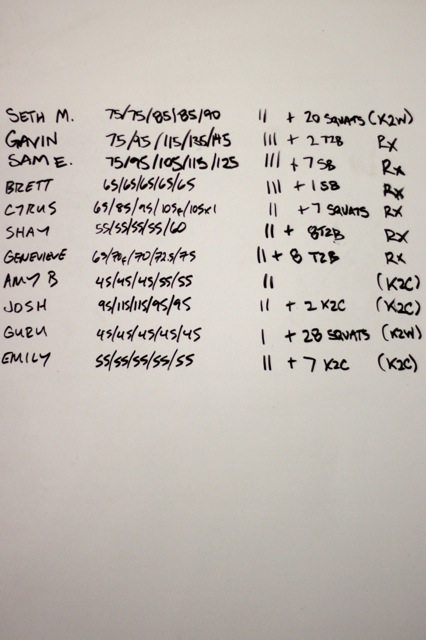 SETH M. 75/75/85/85/90 || + 20 SQUATS (K2W)
GAVIN 75/95/115/135/145 ||| + 2 T2B Rx
SAM E. 75/95/105/115/125 ||| + 7 SB Rx
BRETT 65/65/65/65/65 ||| + 1 SB Rx
CYRUS 65/85/95/105f/105x1 || + 7 SQUATS Rx
SHAY 55/55/55/55/60 || + 8 T2B Rx
GENEVIEVE 65/70f/70/72.5/75 || + 8 T2B Rx
AMY B 45/45/45/55/55 || (K2C)
JOSH 95/115/115/95/95 || + 2 K2C (K2C)
GURU 45/45/45/45/45 | + 28 SQUATS (K2W)
EMILY 55/55/55/55/55 || + 7 K2C (K2C)